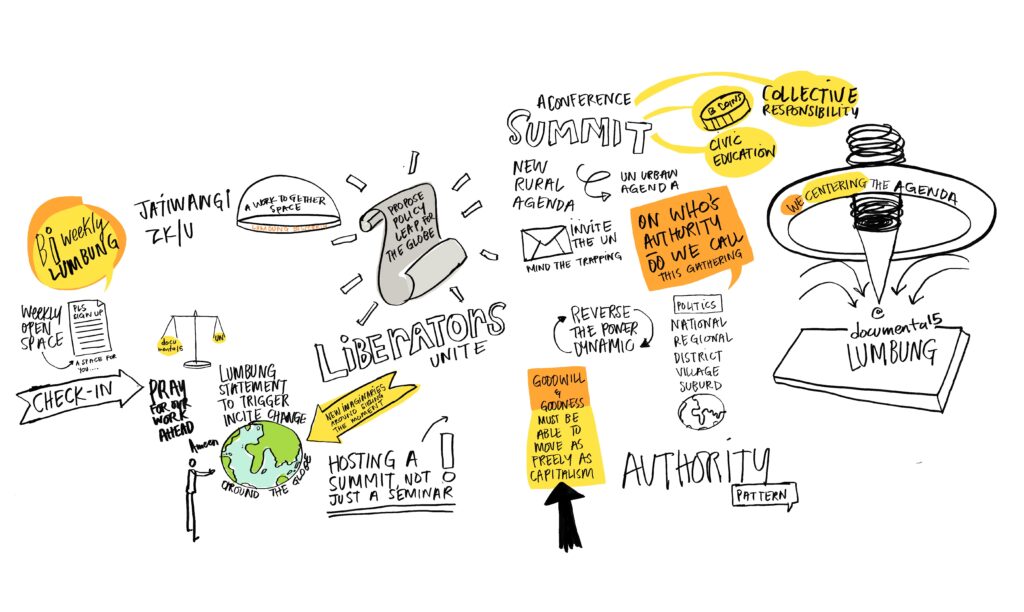 Bi weekly
LUMBUNG
JATIWANGI
ZK/U
A WORK TOGETHER
SPACE
WEEKLY
OPEN
SPACE
PLS
SIGN UP
A SPACE FOR
YOU....
CHECK-IN
docu
menta15
UN
PRAY
FOR OUR
WORK
AHEAD
Ameen
LUMBUNG
STATEMENT
TO TRIGGER
INCITE CHANGE
AROUND THE GLOBE
PROPOSE
POLICY
LEAP FOR
THE GLOBE
LIBERATORS
UNITE
NEW IMAGINARIES
AROUND
THE MOMENT
HOSTING A
SUMMIT, NOT
JUST A SEMINAR
!
A CONFERENCE
SUMMIT
COINS
CIVIC
EDUCATION
COLLECTIVE
RESPONSIBILITY
NEW
RURAL
AGENDA
UN URBAN
AGENDA
INVITE
THE UN
MIND THE TRAPPING
ON WHO'S
AUTHORITY
DO WE CALL
THIS GATHERING
REVERSE
THE POWER
DYNAMIC
POLITICS
NATIONAL
REGIONAL
DISTRICT
VILLAGE
SUBURD
GOODWILL
&
GOODNESS
MUST BE
ABLE TO
MOVE AS
FREELY AS
CAPITALISM
AUTHORITY
PATTERN
WE CENTERING THE AGENDA
@
documenta15
LUMBUNG